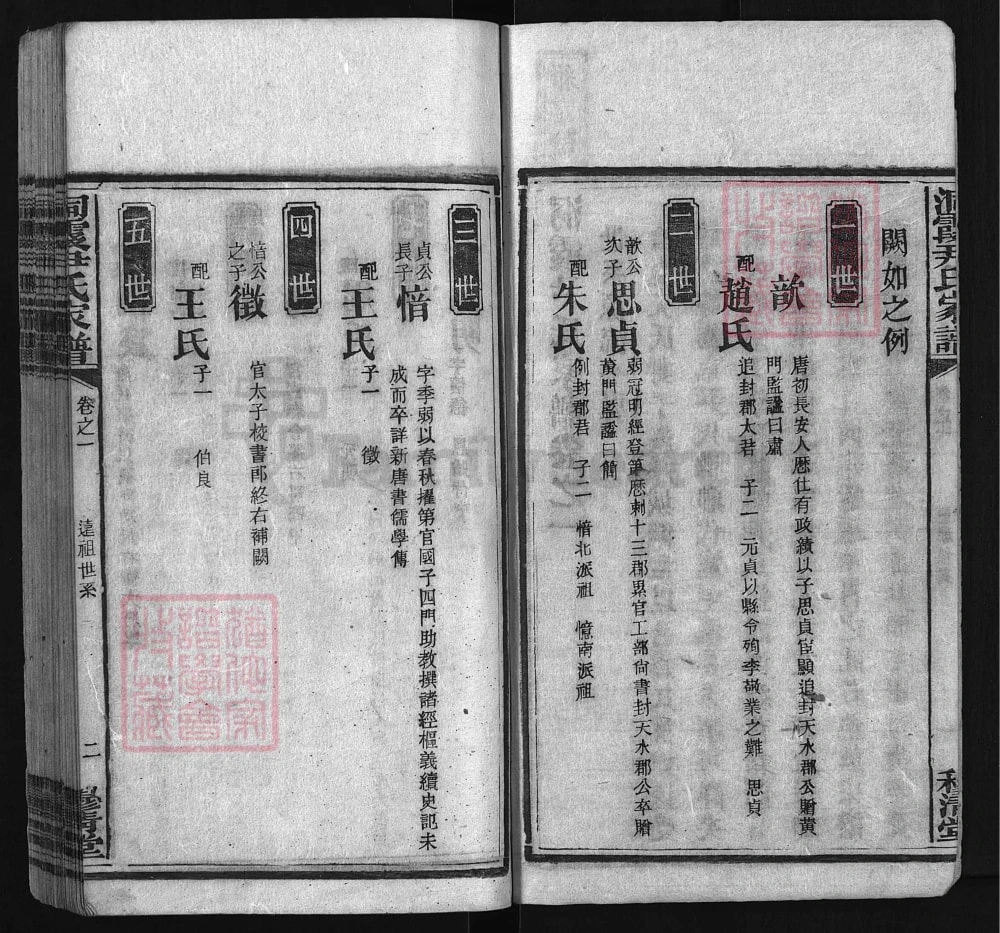 尹氏家譜
闕如之例
一世
歆
唐初長安人歷仕有政績以子思貞宦顯追封天水郡公贈黄
門監諡曰肅
配趙氏
追封郡太君 子二 元貞以縣令殉李敬業之難 思貞
二世
歆公次子思貞
弱冠明經登第歷刺十三郡累官工部尙書封天水郡公卒贈
黄門監諡曰簡
配朱氏
例封郡君 子二 愔北派祖 憶南派祖
三世
貞公長子愔
字季弱以春秋擢第官國子四門助教撰諸經樞義續史記未
成而卒詳新唐書儒學傳
配王氏
子一 徵
四世
愔公之子徵
官太子校書郎終右補闕
配王氏
子一 伯良
五世
尹氏家譜
卷之一
遠祖世系
二